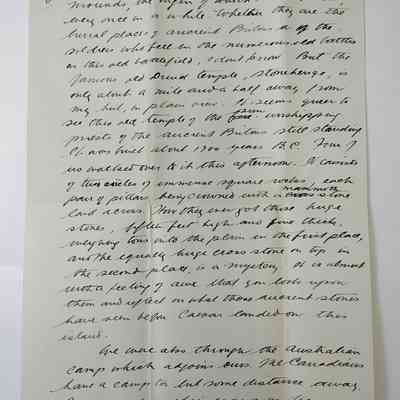 mounds, the origin of which
every once in a while whether they are the
burial place of ancient Britons or of the
soldiers who fell in the numerous old battles
on this old battlefield, I dont know. But the
famous old Druid temple, Stonehenge, is
only about a mile and a half away from
my hut, in plain view. It seems queer to
see this old temple of the sun worshipping
priests of the ancient Britons still standing
It was built about 1700 years B.C. Four of
us walked over to it this afternoon. It consists
of two circles of immense square rocks, each
pair of pillars being crowned with a mammoth stone
laid across. How they ever got those huge
stones, fifteen feet high and five thick,
weighing tons into the plain in the first place,
and the equally huge cross stone on top in
the second place, is a mystery. It is almost
with a feeling of awe that you look upon
them and reflect on what those ancient stones
have seen before Caesar landed on this
island.
We were also through the Australian
camp which adjoins ours. The Canadians
have a camp too but some distance away.